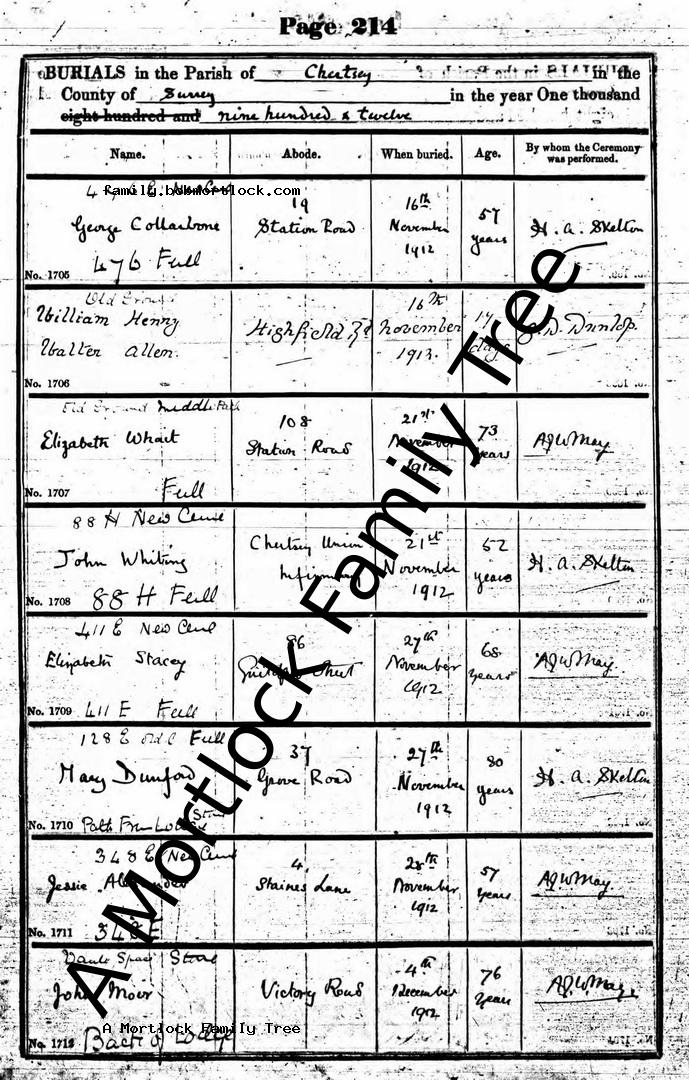 Page 214
BURIALS in the Parish of Chertsey in the
County of Surrey in the year One thousand
eight hundred and nine hundred & twelve
Name. Abode. When buried. Age. By whom the Ceremony was performed.
family.bobmortlock.com
George Collarbone
476 Full
No. 1705
19
Station Road
16th
November
1912
57
years
H. A. Skelton
Old Ground
William Henry
Walter Allen.
No. 1706
Highfield Rd
16th
November
1912.
17
days
D. Dunlop.
Old Ground Middle Path
Elizabeth Whait
Full
No. 1707
108
Station Road
21st
November
1912
73
years
A J W May
88 H New Cem
John Whiting
No. 1708 88 H Full
Chertsey Union
Infirmary
21st
November
1912
52
years
H. A. Skelton
411 E New Cem
Elizabeth Stacey
No. 1709 411 E Full
86
Guildford Street
27th
November
1912
68
years
A J W May.
128 E old C Full
Mary Dunford
Stone
No. 1710 Path From Lodge
37
Grove Road
27th
November
1912
80
years
H. A. Skelton
348 E New Cem
Jessie Alexander
No. 1711 348 E
4
Staines Lane
28th
November
1912
57
years
A J W May.
Vault Space Stone
John Moor
No. 1712 Back of Lodge
Victory Road
4th
December
1912
76
years
A J W May
A Mortlock Family Tree
A Mortlock Family Tree